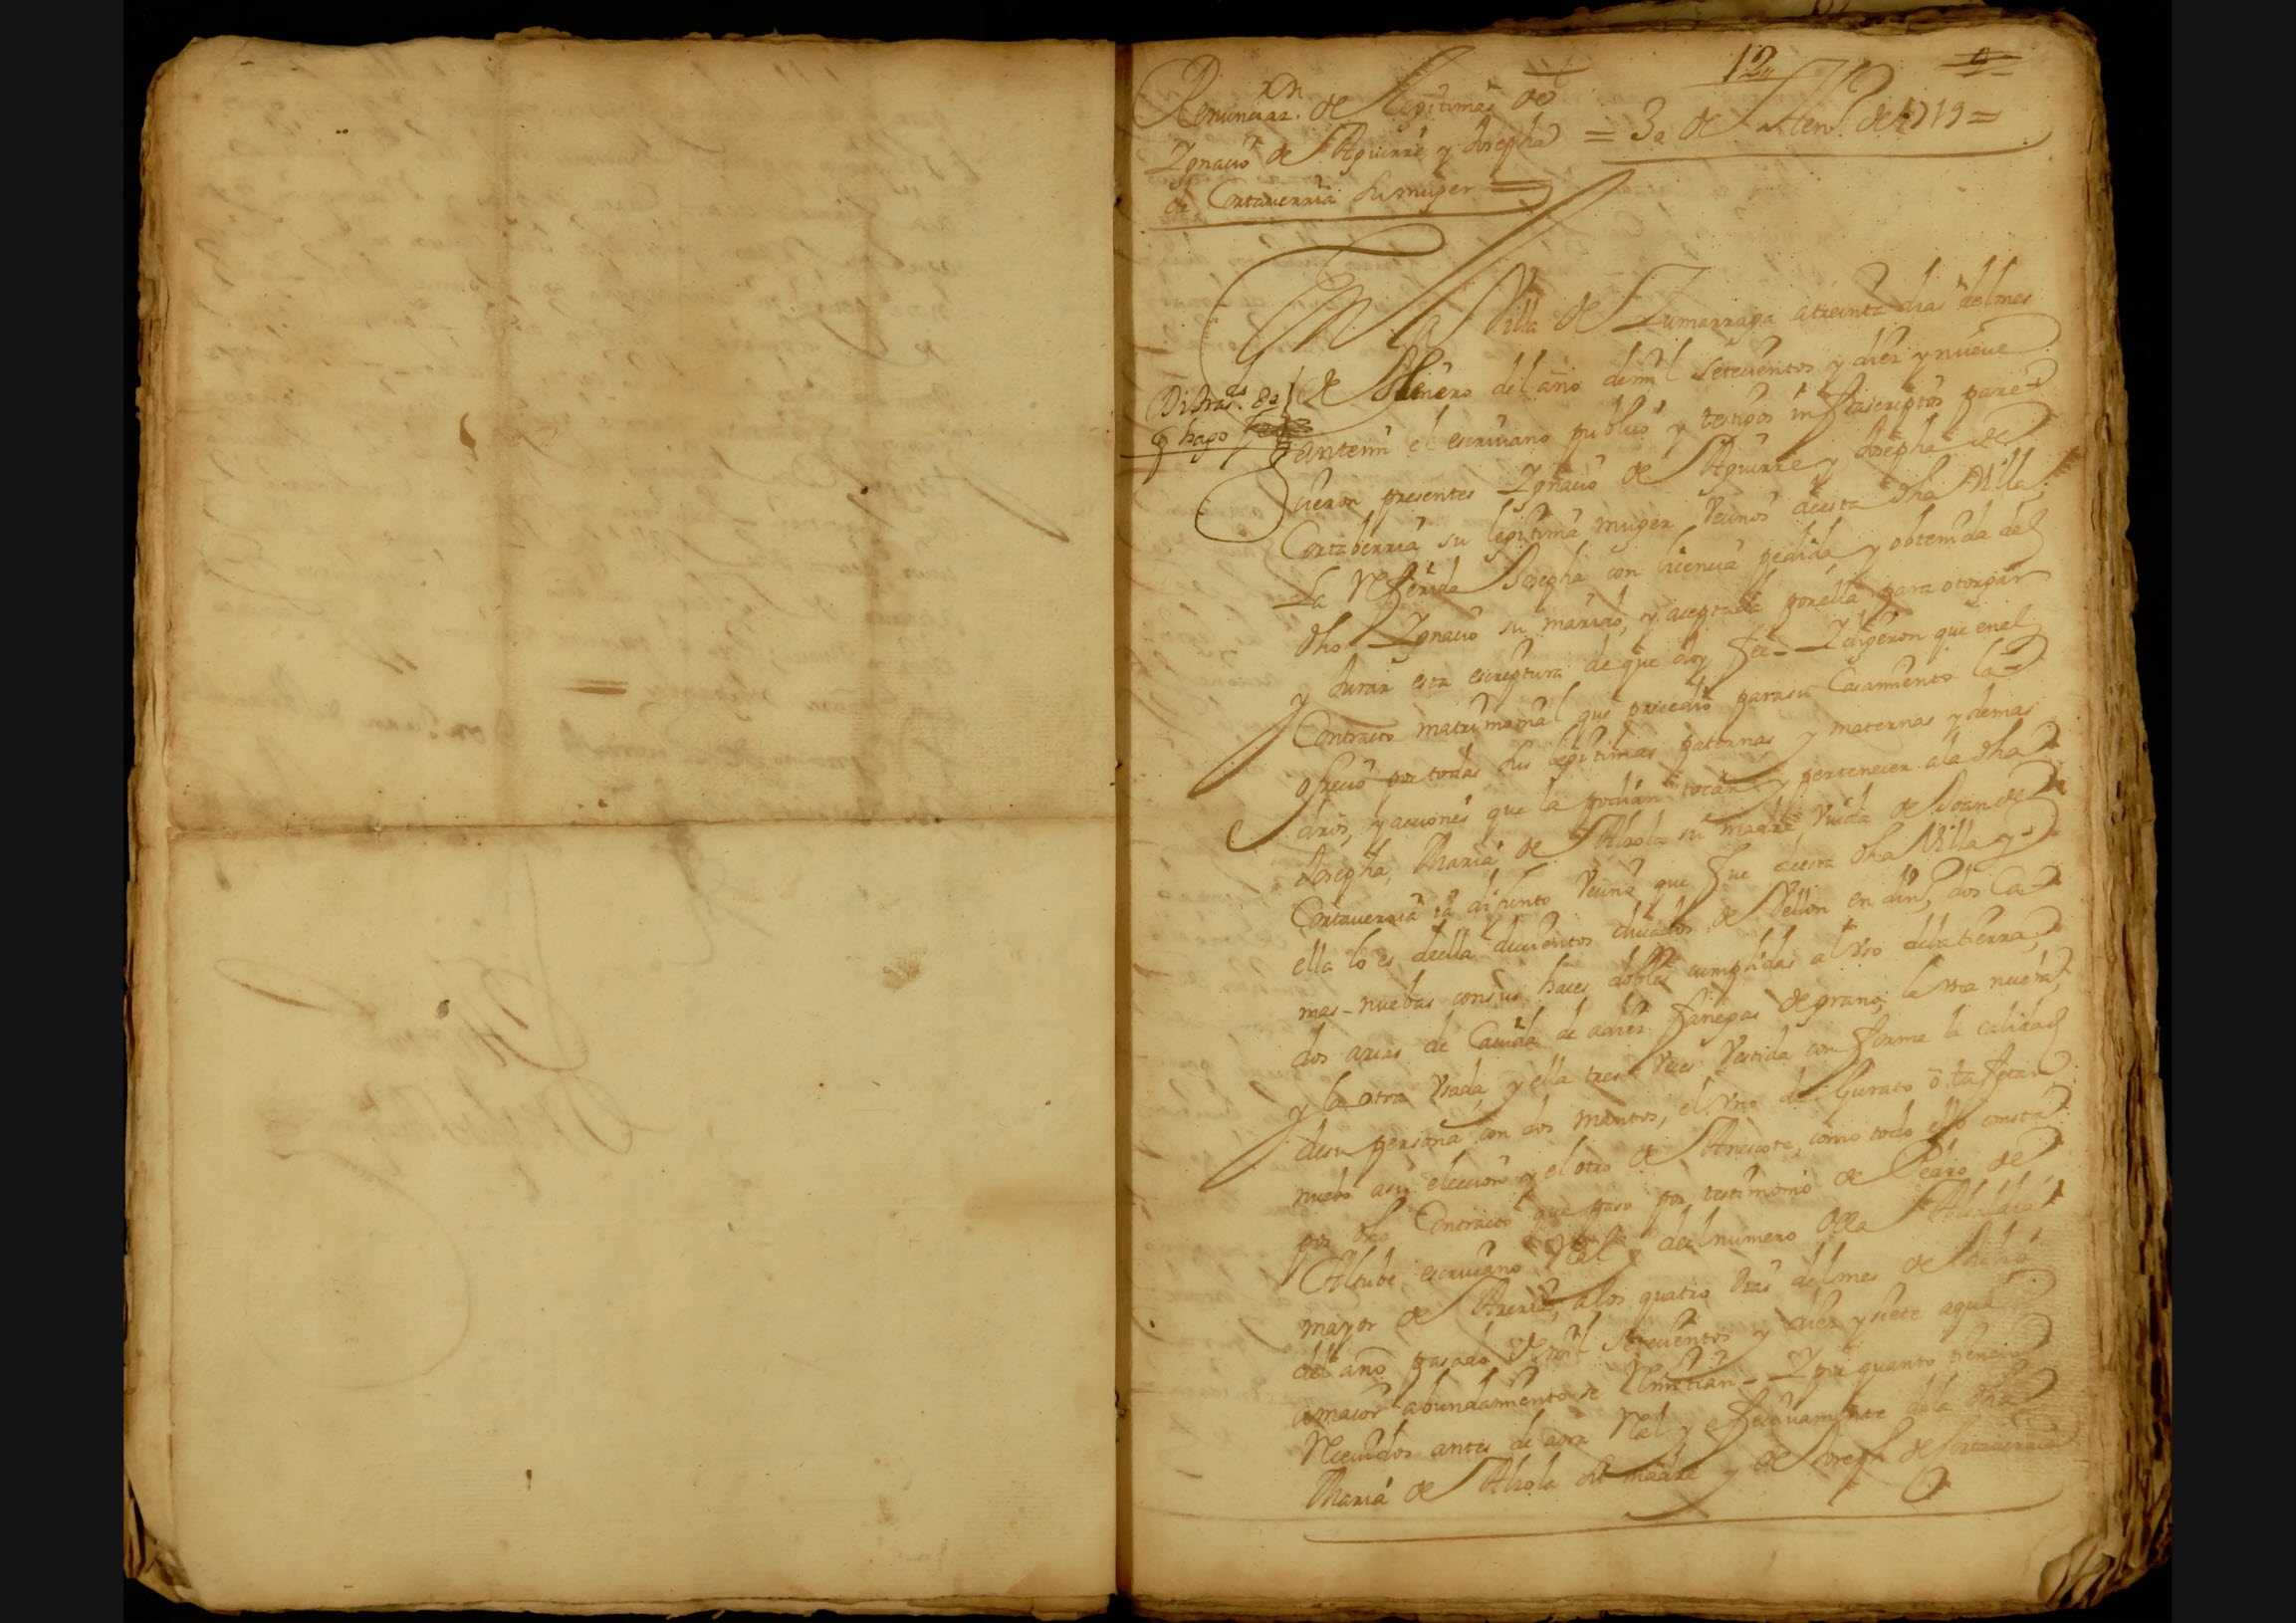 12
Renunciaz.on de legitimas de
Ygnacio de Aguirre y Josepha
de Cortaverria su muger
= 30 de Hen.o de 1719 =
En la Villa de Zumarraga a treinta dias del mes
de Henero del año de mil setecientos y diez y nueve
Di tras.do de
q hago fee
ante mi el escrivano publico y testigos infrascriptos pare
cieron presentes Ygnacio de Aguirre y Josepha de
Cortaberria su legitima muger vecinos de esta dha Villa,
La referida Josepha con licencia pedida, y obtenida del
dho Ygnacio su marido, y aceptada por ella para otorgar
y Jurar esta escriptura de que doy fee = Y digeron que en el
Contracto matrimonial que precedio para su Casamiento la
ofrecio por todas sus legitimas paternas y maternas y demas
dros, y acciones que la podian tocar y pertenecer a la dha
Josepha, Maria de Alzola su madre, viuda de Joan de
Cortaverria ia difunto vecino que fue de esta dha Villa y
ella lo es de ella ducientos ducados de Vellon en din.o, dos ca
mas nuebas con sus haces dobles cumplidas al vso de la tierra,
dos arcas de Cavida de a diez fanegas de grano, la vna nueba,
y la otra vsada, y ella tres veces vestida conforme la calidad
de su persona con dos mantos, el vno de Gurato o tafetan
nuebo a su eleccion y el otro de Anescote, como todo ello consta
por dho Contracto que paso por testimonio de Pedro de
Altube escrivano Real y del numero de la Alcaldia
mayor de Areria, a los quatro dias del mes de
del año pasado de mil setecientos y diez y siete aqui
a maior abundamiento se remitian = Y por quanto tienen
Recividos antes de aora Real y efectivamente de la dha
Maria de Alzola su madre y de Joseph de Cortaverria